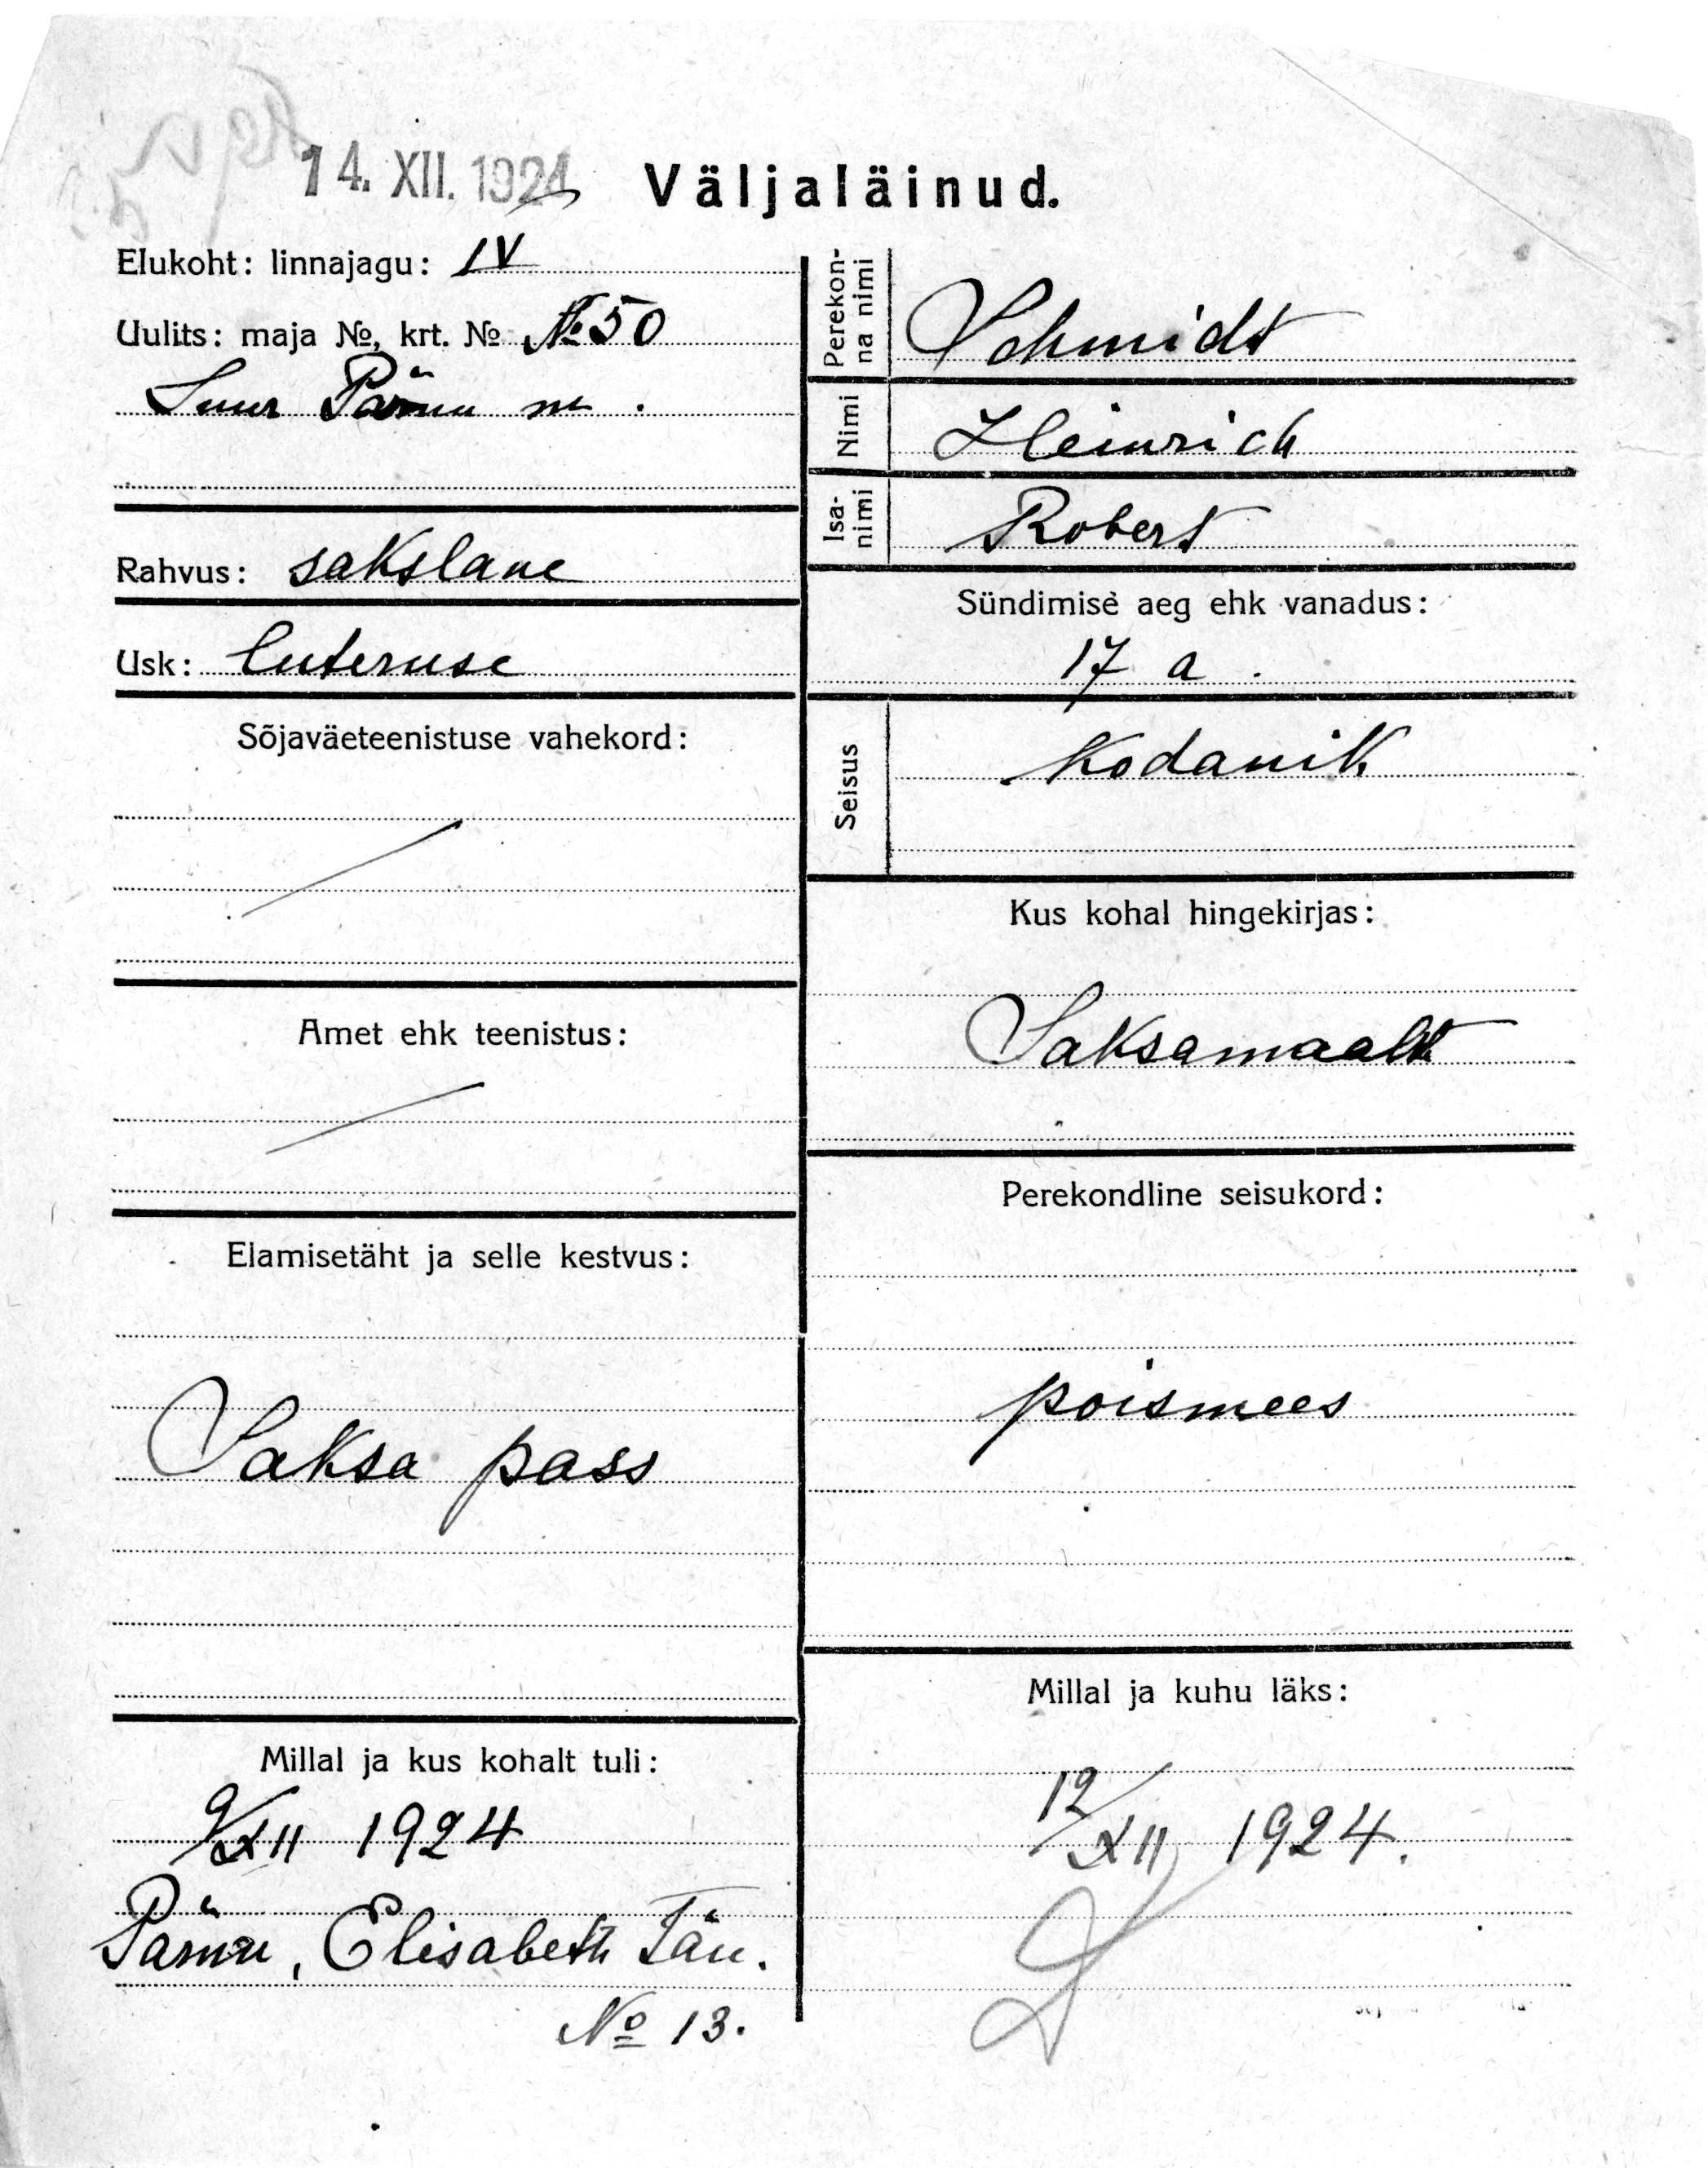 14. XII. 1924
Väljaläinud.
Elukoht: linnajagu: IV
Uulits: maja №, krt. № № 50
Suur Pärnu m.
Rahvus: sakslane
Usk: luteruse
Sõjaväeteenistuse vahekord:
Amet ehk teenistus:
Elamisetäht ja selle kestvus:
Saksa pass
Millal ja kus kohalt tuli:
9/XII 1924
Pärnu, Elisabeth Tän.
№ 13.
Perekon-
na nimi
Schmidt
Nimi
Heinrich
Isa-
nimi
Robert
Sündimise aeg ehk vanadus:
17 a.
Seisus
Kodanik
Kus kohal hingekirjas:
Saksamaalt
Perekondline seisukord:
poismees
Millal ja kuhu läks:
12/XII 1924.